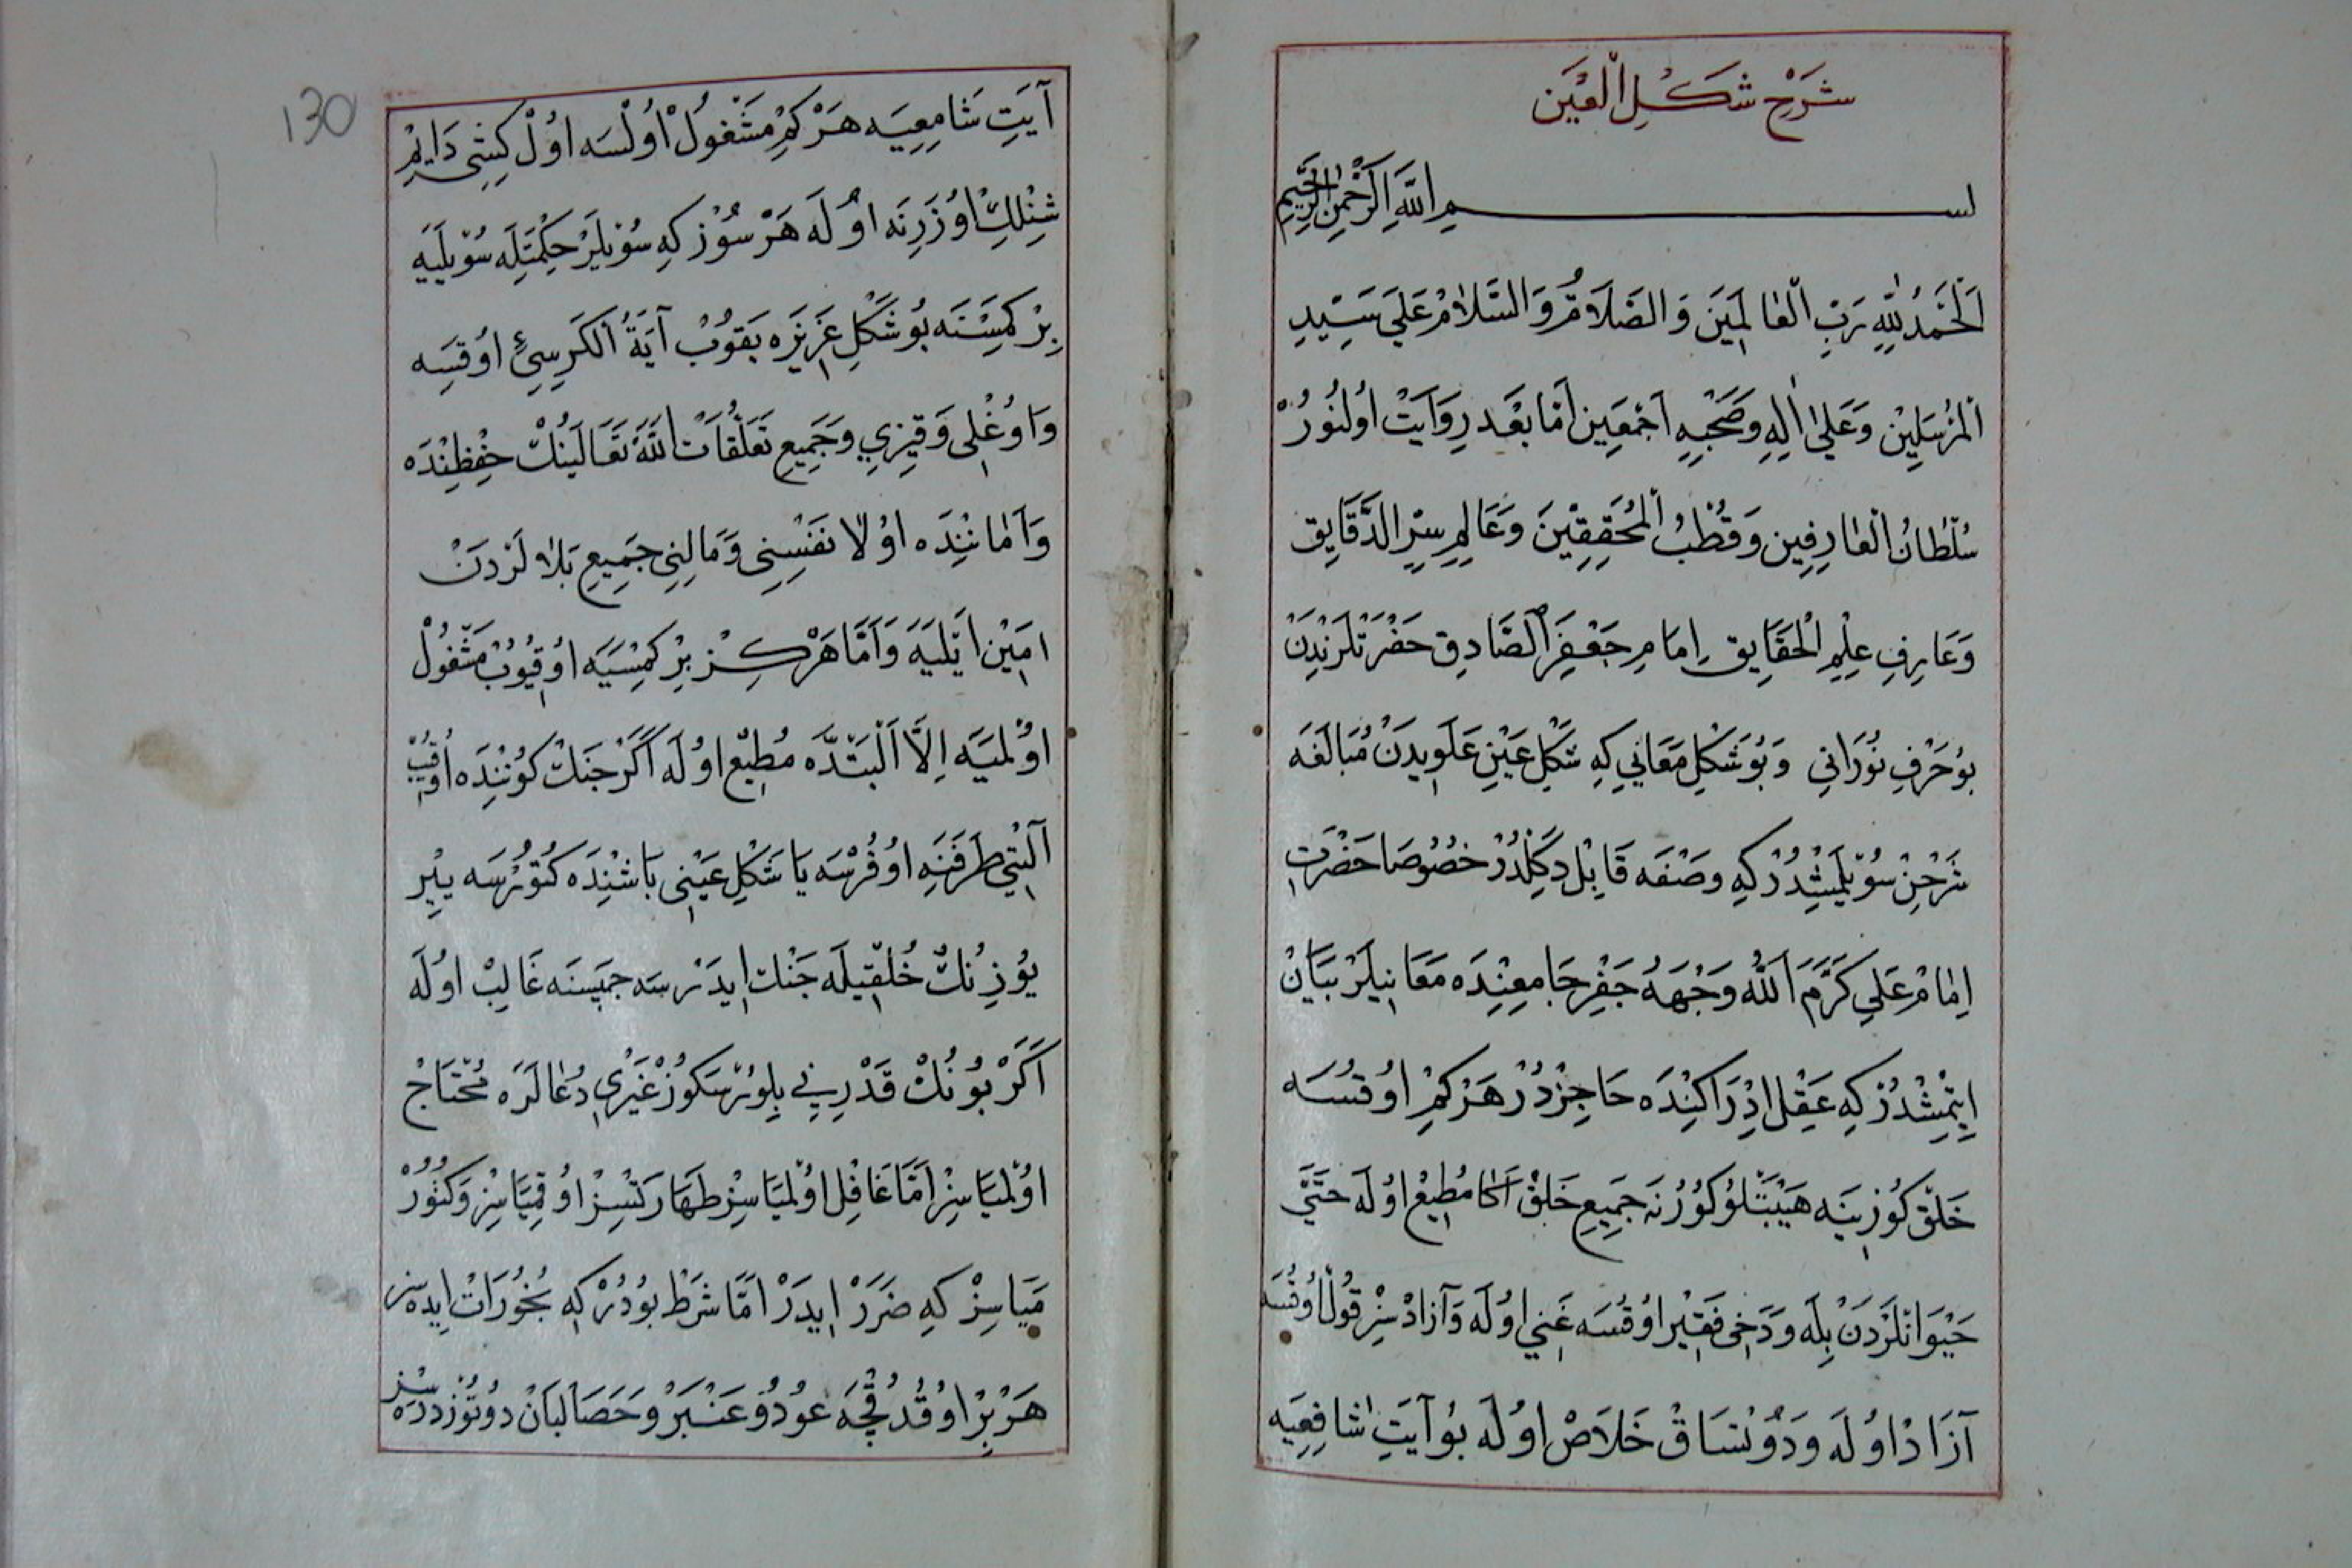 شَرْحِ شَكْلِ الْعَيْن
بسم اللّٰه الرحمن الرحيم
اَلْحَمْدُ لِلّٰهِ رَبِّ الْعَالَمِينَ وَالصَّلَاةُ وَالسَّلَامُ عَلَى سَيِّدِ
الْمُرْسَلِينْ وَعَلَى اٰلِهِ وَصَحْبِهِ اَجْمَعِينَ اَمَّا بَعْد رِوَايَتْ اُولُنُورْ
سُلْطَانُ الْعَارِفِين وَقُطْبُ الْمُحَقِقِّينَ وَعَالِمِ سِرِّ الدَّقَايِق
وَعَارِفِ عِلْمِ الْحَقَايِق اِمَامِ جَعْفَرِ الصَّادِق حَضْرَتْلَرِنْدَنْ
بُو حَرْفِ نُورَانِي وَبُو شَكْلِ مَعَانِي كِه شَكْلِ عَيْنِ عَلَوِيدَنْ مُبَالَغَه
شَرْحِنْ سُوَيْلَمِشْدُرْ كِه وَصْفَه قَابِلْ دَكِلْدُرْ خُصُوصَا حَضْرَتِ
اِمَامْ عَلِي كَرَّمَ اللّٰهُ وَجْهَهُ جَفْرِ جَامِعِنْدَه مَعَانِيلَرْ بَيَانْ
اِيتْمِشْدُرْ كِه عَقِلْ اِدْرَاكِنْدَه حَاجِزْدُرْ هَرْكِمْ اوُقُسَه
خَلْقْ كُوزِينَه هَيْبَتْلُو كُورُنَه جَمِيعِ خَلْقْ اَكَا مُطِيعْ اوُلَه حَتَّى
حَيْوَانْلَرْدَنْ بِلَه وَدَخِى فَقِيْر اوُقُسَه غَنِي اوُلَه وَآزَادْسِزْ قُولْ اوُقُسَه
آزَادْ اوُلَه وَدُوتْسَاقْ خَلَاصْ اوُلَه بُو آيَتِ شَافِعِيَه
130
آيَتِ شَامِعِيَه هَرْ كِمْ مَشْغُولْ اوُلْسَه اوُلْ كِشِى دَايِمْ
شِنْلِكْ اوُزَرِنَه اوُلَه هَرْ سُوْز كِه سُوْيلَرْ حِكْمَتِلَه سُوْيلَيَه
بِرْ كَمِسْنَه بُو شَكْلِ عَزِيزَه بَقُوبْ آيَةُ الْكَرِسِيِّ اوُقِسَه
وَاوُغْلِى وَقِيزِي وَجَمِيعِ تَعَلُّقَاتْ اللّٰهُ تَعَالَينُكْ حِفْظِنْدَه
وَآمَانِنْدَه اوُلَا نَفْسِنِى وَمَالِنِى جَمِيعِ بَلَالَرْدَنْ
امِيْن اَيْلَيَه وَاَمَّا هَرْكِزْ بِرْ كَمْسَيَه اوُقُيُوبْ مَشْغُولْ
اوُلْمَيَه اِلَّا اَلْبَتْدَه مُطِيعْ اوُلَه اَكَرْ جَنْكْ كُونِنْدَه اوُقُيُبْ
آلْتِى طَرَفَنَه اوُفُرْسَه يَا شَكْلِ عَيْنِى بَاشِنْدَه كُتُورْسَه يِيْر
يوُزِنُكْ خَلْقِيلَه جَنْك اِيدَرْسَه جَمِيسَنَه غَالِبْ اوُلَه
اَكَرْ بُونُكْ قَدْرِينِ بِلِورْسَكُوزْ غَيْرِي دُعَالَرَه مُحْتَاجْ
اوُلْمَيَاسِزْ اَمَّا غَافِل اوُلْمَيَاسِزْ طَهَارَتْسِزْ اوُقِمَيَاسِزْ وَكُتُورْ
مَيَاسِزْ كِه ضَرَرْ اِيدَرْ اَمَّا شَرْطْ بُودُرْ كِه بُخُورَاتْ اِيدَه سِز
هَرْ بِرْ اوُقُدُقْچَه عُودُ وُ عَنْبَرْ وَحَصَالْبَانْ دُوتُوزْدُرَه سِزْ